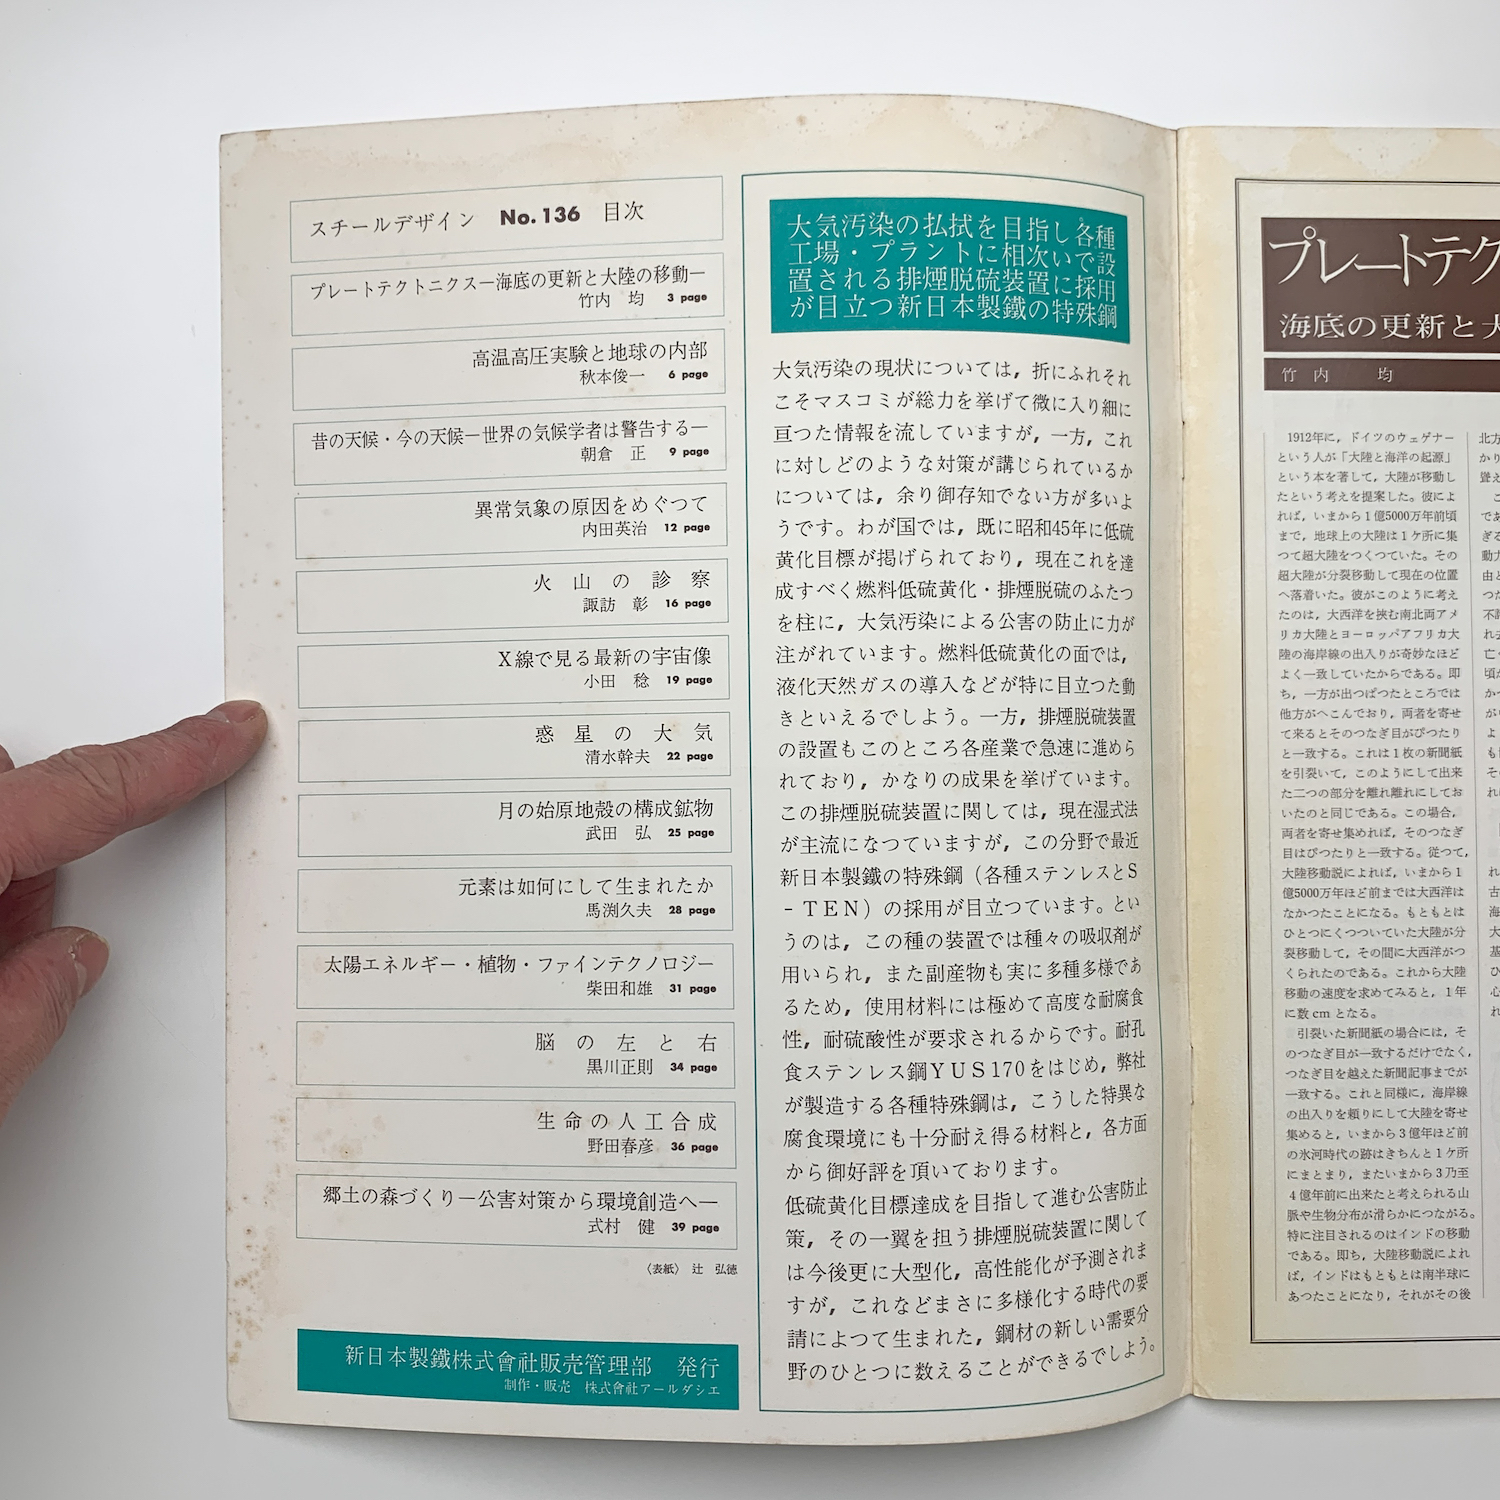 スチールデザイン No.136 目次
プレートテクトニクス―海底の更新と大陸の移動―
竹内 均 3 page
高温高圧実験と地球の内部
秋本俊一 6 page
昔の天候・今の天候―世界の気候学者は警告する―
朝倉 正 9 page
異常気象の原因をめぐつて
内田英治 12 page
火山の診察
諏訪 彰 16 page
X線で見る最新の宇宙像
小田 稔 19 page
惑星の大気
清水幹夫 22 page
月の始原地殻の構成鉱物
武田 弘 25 page
元素は如何にして生まれたか
馬渕久夫 28 page
太陽エネルギー・植物・ファインテクノロジー
柴田和雄 31 page
脳の左と右
黒川正則 34 page
生命の人工合成
野田春彦 36 page
郷土の森づくり―公害対策から環境創造へ―
式村 健 39 page
〈表紙〉 辻 弘徳
新日本製鐵株式會社販売管理部 発行
制作・販売 株式會社アールダシエ
大気汚染の払拭を目指し各種
工場・プラントに相次いで設
置される排煙脱硫装置に採用
が目立つ新日本製鐵の特殊鋼
大気汚染の現状については，折にふれそれ
こそマスコミが総力を挙げて微に入り細に
亘つた情報を流していますが，一方，これ
に対しどのような対策が講じられているか
については，余り御存知でない方が多いよ
うです。わが国では，既に昭和45年に低硫
黄化目標が掲げられており，現在これを達
成すべく燃料低硫黄化・排煙脱硫のふたつ
を柱に，大気汚染による公害の防止に力が
注がれています。燃料低硫黄化の面では，
液化天然ガスの導入などが特に目立つた動
きといえるでしよう。一方，排煙脱硫装置
の設置もこのところ各産業で急速に進めら
れており，かなりの成果を挙げています。
この排煙脱硫装置に関しては，現在湿式法
が主流になつていますが，この分野で最近
新日本製鐵の特殊鋼（各種ステンレスとS
-TEN）の採用が目立つています。とい
うのは，この種の装置では種々の吸収剤が
用いられ，また副産物も実に多種多様であ
るため，使用材料には極めて高度な耐腐食
性，耐硫酸性が要求されるからです。耐孔
食ステンレス鋼YUS170をはじめ，弊社
が製造する各種特殊鋼は，こうした特異な
腐食環境にも十分耐え得る材料と，各方面
から御好評を頂いております。
低硫黄化目標達成を目指して進む公害防止
策，その一翼を担う排煙脱硫装置に関して
は今後更に大型化，高性能化が予測されま
すが，これなどまさに多様化する時代の要
請によつて生まれた，鋼材の新しい需要分
野のひとつに数えることができるでしよう。
プレートテク
海底の更新と大
竹内 均
1912年に，ドイツのウェゲナー
という人が「大陸と海洋の起源」
という本を著して，大陸が移動し
たという考えを提案した。彼によ
れば，いまから1億5000万年前頃
まで，地球上の大陸は1ケ所に集
つて超大陸をつくつていた。その
超大陸が分裂移動して現在の位置
へ落着いた。彼がこのように考え
たのは，大西洋を挟む南北両アメ
リカ大陸とヨーロッパアフリカ大
陸の海岸線の出入りが奇妙なほど
よく一致していたからである。即
ち，一方が出つぱつたところでは
他方がへこんでおり，両者を寄せ
て来るとそのつなぎ目がぴつたり
と一致する。これは1枚の新聞紙
を引裂いて，このようにして出来
た二つの部分を離れ離れにしてお
いたのと同じである。この場合，
両者を寄せ集めれば，そのつなぎ
目はぴつたりと一致する。従つて，
大陸移動説によれば，いまから1
億5000万年ほど前までは大西洋は
なかつたことになる。もともとは
ひとつにくつついていた大陸が分
裂移動して，その間に大西洋がつ
くられたのである。これから大陸
移動の速度を求めてみると，1年
に数cmとなる。
引裂いた新聞紙の場合には，そ
のつなぎ目が一致するだけでなく，
つなぎ目を越えた新聞記事までが
一致する。これと同様に，海岸線
の出入りを頼りにして大陸を寄せ
集めると，いまから3億年ほど前
の氷河時代の跡はきちんと1ケ所
にまとまり，またいまから3乃至
4億年前に出来たと考えられる山
脈や生物分布が滑らかにつながる。
特に注目されるのはインドの移動
である。即ち，大陸移動説によれ
ば，インドはもともとは南半球に
あつたことになり，それがその後